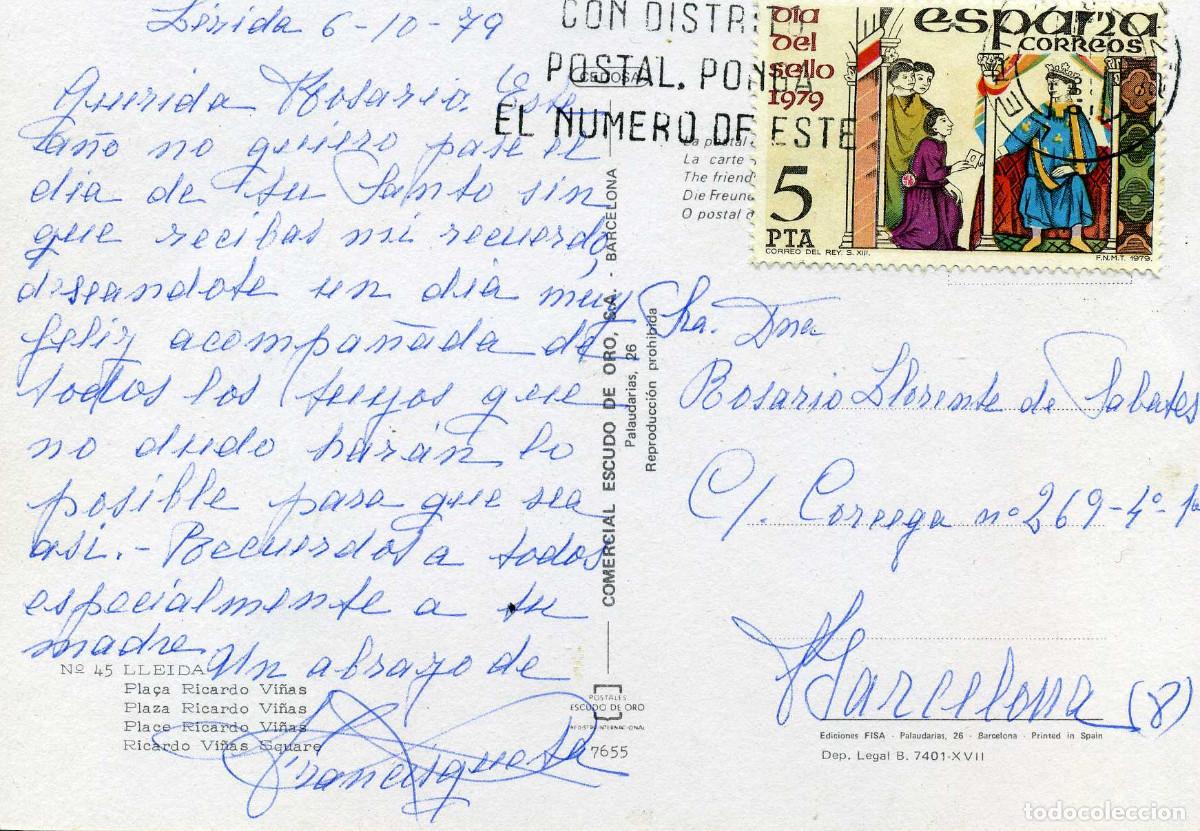 Lérida 6-10-79
Querida Rosario. Este
año no quiero pase el
dia de tu Santo sin
que recibas mi recuerdo
deseandote un dia muy
feliz acompañada de
todos los tuyos que
no dudo harán lo
posible para que sea
asi.- Recuerdos a todos
especialmente a tu
madre
Un abrazo de
Nº 45 LLEIDA
Plaça Ricardo Viñas
Plaza Ricardo Viñas
Place Ricardo Viñas
Ricardo Viñas Square
POSTALES
ESCUDO DE ORO
7655
CEDOSA
COMERCIAL ESCUDO DE ORO, S.A. - BARCELONA
Palaudarias, 26
Reproducción prohibida
CON DISTR
POSTAL, PONGA
EL NUMERO DE ESTE
La postal
La carte
The friend
Die Freun
O postal d
Dia
del
sello
1979
españa
CORREOS
5
PTA
CORREO DEL REY. S. XIII.
F.N.M.T. 1979.
Sra. Dña
Rosario Llorente de Sabates
C/. Corcega nº 269-4º-1ª
Barcelona (8)
Ediciones FISA - Palaudarias, 26 - Barcelona - Printed in Spain
Dep. Legal B. 7401-XVII
todocoleccion